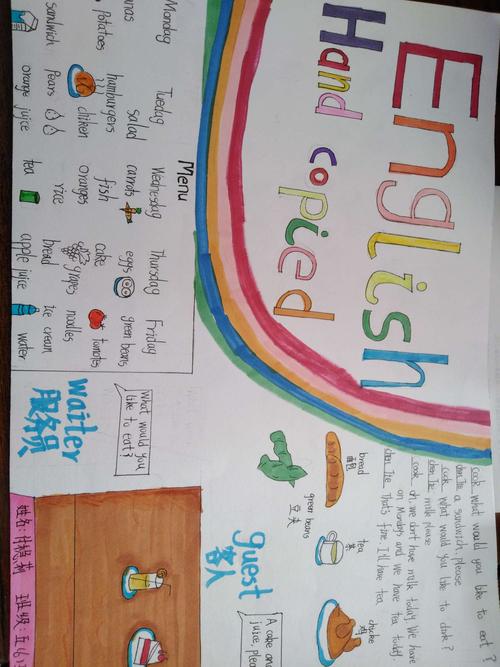 English
Hand copied
Menu
Monday Tueday Wednesday Thursday Friday
salad carrots eggs green beans
potatoes humburgers fish cake tomatoes
chiken oranges grapes noodles
sandwich Pears rice bread ice cream
orange juice tea apple juice water
cook what would you like to eat?
a sandwich, please
cook what would you like to drink?
milk please
cook oh, we don't have milk today We have
on Mondays and we have tea today
That's fine. I'll have tea
bread
面包
tea
茶
chicke
鸡
green beans
豆夹
What would you
like to eat?
waiter
服务员
guest
客人
A cake and
juice, plea
姓名:
班级:五(6)